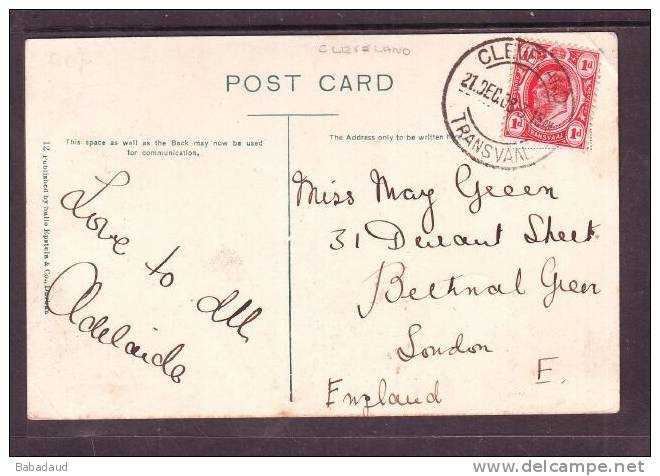 CLEVELAND
POST CARD
This space as well as the Back may now be used
for communication.
The Address only to be written
12 Published by Sallo Epstein & Co., Durban
CLEVELAND
27.DEC.08
TRANSVAAL
1d 1d
TRANSVAAL
1d 1d
Love to all
Adelaide
Miss May Green
31 Street
Bethnal Green
London
E.
England
Babadaud
delcampe.net